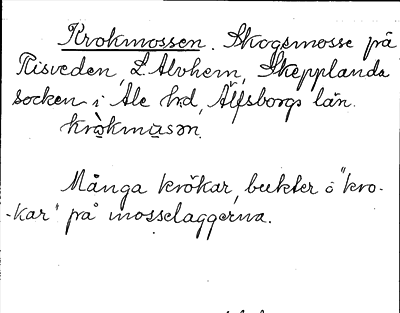 Krokmossen. Skogsmosse på
Risveden, L. Alvhem, Skepplanda
socken i Ale hd, Älfsborgs län.
kròkmusən.
Många krökar, bukter o "kro-
-kar" på mosselaggerna.